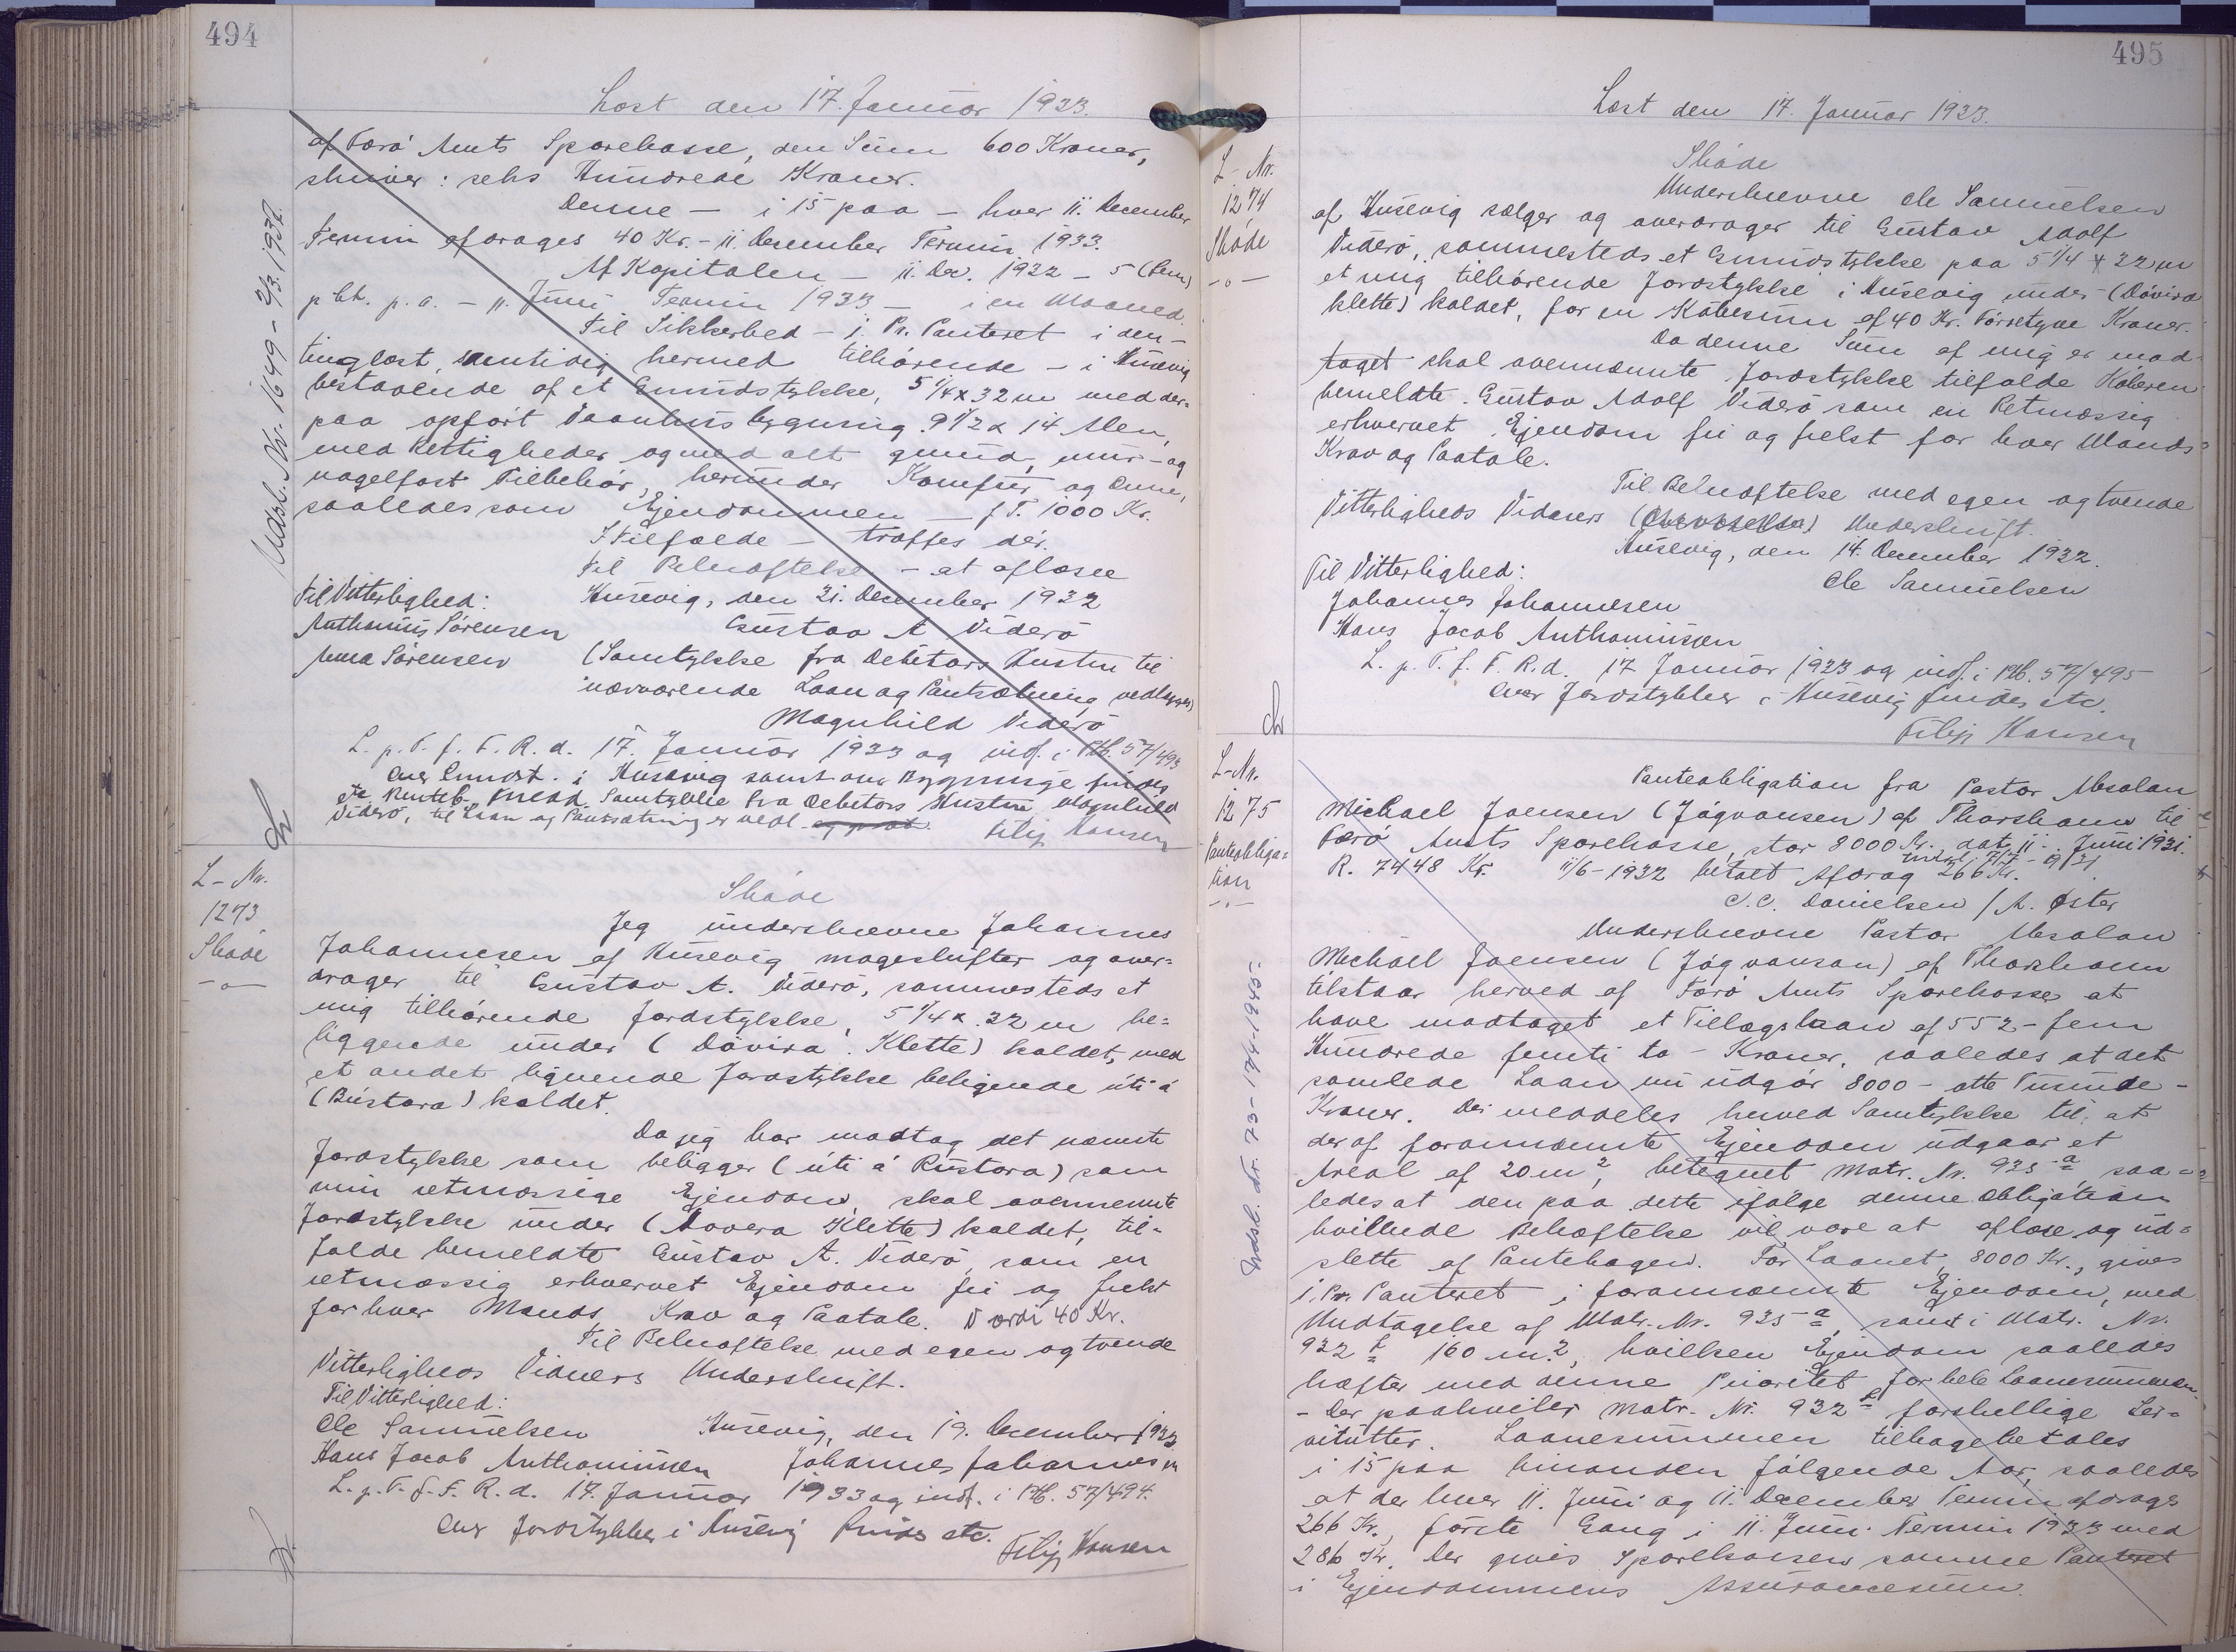 494
Læst den 17. Januar 1933.
af Færø Amts Sparekasse, den Sum 600 Kroner,
skriver: seks Hundrede Kroner.
Denne — i 15 paa — hver 11. December
Termin afdrages 40 Kr. - 11. December Termin 1933.
Af Kapitalen — 11. Dec. 1932 — 5 (fem)
pCt. p. a. — 11. Juni Termin 1933 — i en Maaned.
Til Sikkerhed — 1. Pr. Panteret i den —
tinglæst, samtidig hermed tilhørende — i Húsavig
bestaaende af et Grundstykke, 5 1/4 x 32 m med der=
paa opført Vaanhusbygning 9 1/2 x 14 Alen,
med Rettigheder og med alt grund, mur- og
nagelfast Tilbehør, herunder Komfur og Ovne,
saaledes som Ejendommen — f. T. 1000 Kr.
I Tilfælde — træffes der.
Til Bekræftelse — at aflæse
Til Vitterlighed: Húsevig, den 21. December 1932
Anthonius Sørensen Gustav A Viderø
Anna Sørensen (Samtykke fra Debitors Hustru til
nærværende Laan og Pantsætning vedlægges)
Magnhild Viderø
L. p. T. f. F. R. d. 17. Januar 1933 og indf. i Ptb. 57/493
Over Grundst. i Húsevig samt om Bygninge findes
Samtykke fra Debitors Hustru Magnhild
Viderø, til Laan og Pantsætning er vedl. Filip Hansen
Udsl. Nr. 1649 - 2/3. 1937.
L - Nr.
1273
Skøde
-"-
Skøde
Jeg underskrevne Johannes
Johannesen af Húsevig mageskifter og over=
drager til Gustav A. Viderø, sammesteds et
mig tilhørende Jordstykke, 5 1/4 x 32 m be=
liggende under (Dávira Klette) kaldet, med
et andet lignende Jordstykke beligende úti á
(Rústara) kaldet.
Da jeg har modtag det nævnte
Jordstykke som beligger (úti á Rústara) som
min retmæssige Ejendom, skal ovennevnte
Jordstykke under (Dovera Klette) kaldet, til=
falde bemeldte Gustav A. Viderø, som en
retmæssig erhvervet Ejendom fri og frelst
for hver Mands Krav og Paatale. Værdi 40 Kr.
Til Bekræftelse med egen og tvende
Vitterligheds Vidners Underskrift.
Til Vitterlighed:
Ole Samuelsen Húsevig, den 19. December 1932
Hans Jacob Anthoniussen Johannes Johannesen
L. p. T. f. F. R. d. 17. Januar 1933 og indf. i Ptb. 57/494.
Over Jordstykker i Húsevig findes etc.
Filip Hansen
495
Læst den 17. Januar 1933.
L - Nr.
1274
Skøde
-"-
Skøde
Underskrevne Ole Samuelsen
af Húsevig sælger og overdrager til Gustav Adolf
Viderø, sammesteds et Grundstykke paa 5 1/4 x 32 m
et mig tilhørende Jordstykke i Húsevig under (Dávira
klette) kaldet, for en Købesum af 40 Kr. Førretyve Kroner.
Da denne Sum af mig er mod=
taget skal ovennævnte Jordstykke tilfalde Køberen
bemeldte Gustav Adolf Viderø som en Retmæssig
erhvervet Ejendom fri og frelst for hver Mands
Krav og Paatale.
Til Bekræftelse med egen og tvende
Vitterligheds Vidners Underskrift.
Húsevig, den 14. December 1932.
Til Vitterlighed: Ole Samuelsen
Johannes Johannesen
Hans Jacob Anthoniussen
L. p. T. f. F. R. d. 17 Januar 1933 og indf. i Ptb. 57/495
Over Jordstykker i Húsevig findes etc.
Filip Hansen
L-Nr.
1275
Panteobliga=
tion
-"-
Panteobligation fra Pastor Absalon
Michael Joensen (Jógvansen) af Thorshavn til
Færø Amts Sparekasse, stor 8000 Kr. dat. 11. Juni 1931.
R. 7448 Kr. 11/6-1932 betalt Afdrag 266 Kr.
J. C. Danielsen / A. Øster
Underskrevne Pastor Absalon
Michael Joensen (Jógvanson) af Thorshavn
tilstaar herved af Færø Amts Sparekasse at
have modtaget et Tillægslaan af 552 - fem
Hundrede femti to - Kroner, saaledes at det
samlede Laan nu udgør 8000 - otte Tusinde -
Kroner. Der meddeles herved Samtykke til, at
der af forannævnte Ejendom udgaar et
Areal af 20 m², betegnet Matr. Nr. 935 a, saa=
ledes at den paa dette ifølge denne Obligation
hvillende Behæftelse vil være at aflæse og ud=
slette af Pantebogen. For Laanet, 8000 Kr., gives
1. Pr. Panteret i forannævnte Ejendom, med
Undtagelse af Matr. Nr. 935 a, samt i Matr. Nr.
932 f 160 m², hvilken Ejendom saaledes
hæfter med denne Prioritet for hele Laanesummen.
- Der paahviler Matr. Nr. 932 f forskellige Ser=
vitutter. Laanesummen tilbagebetales
i 15 paa hinanden følgende Aar, saaledes
at der hver 11. Juni og 11. December Termin afdrages
266 Kr., første Gang i 11. Juni Termin 1933 med
286 Kr. Der gives Sparekassen samme Panteret
i Ejendommens Assurancesum.
Udsl. Nr. 73 - 17/4 - 1945.